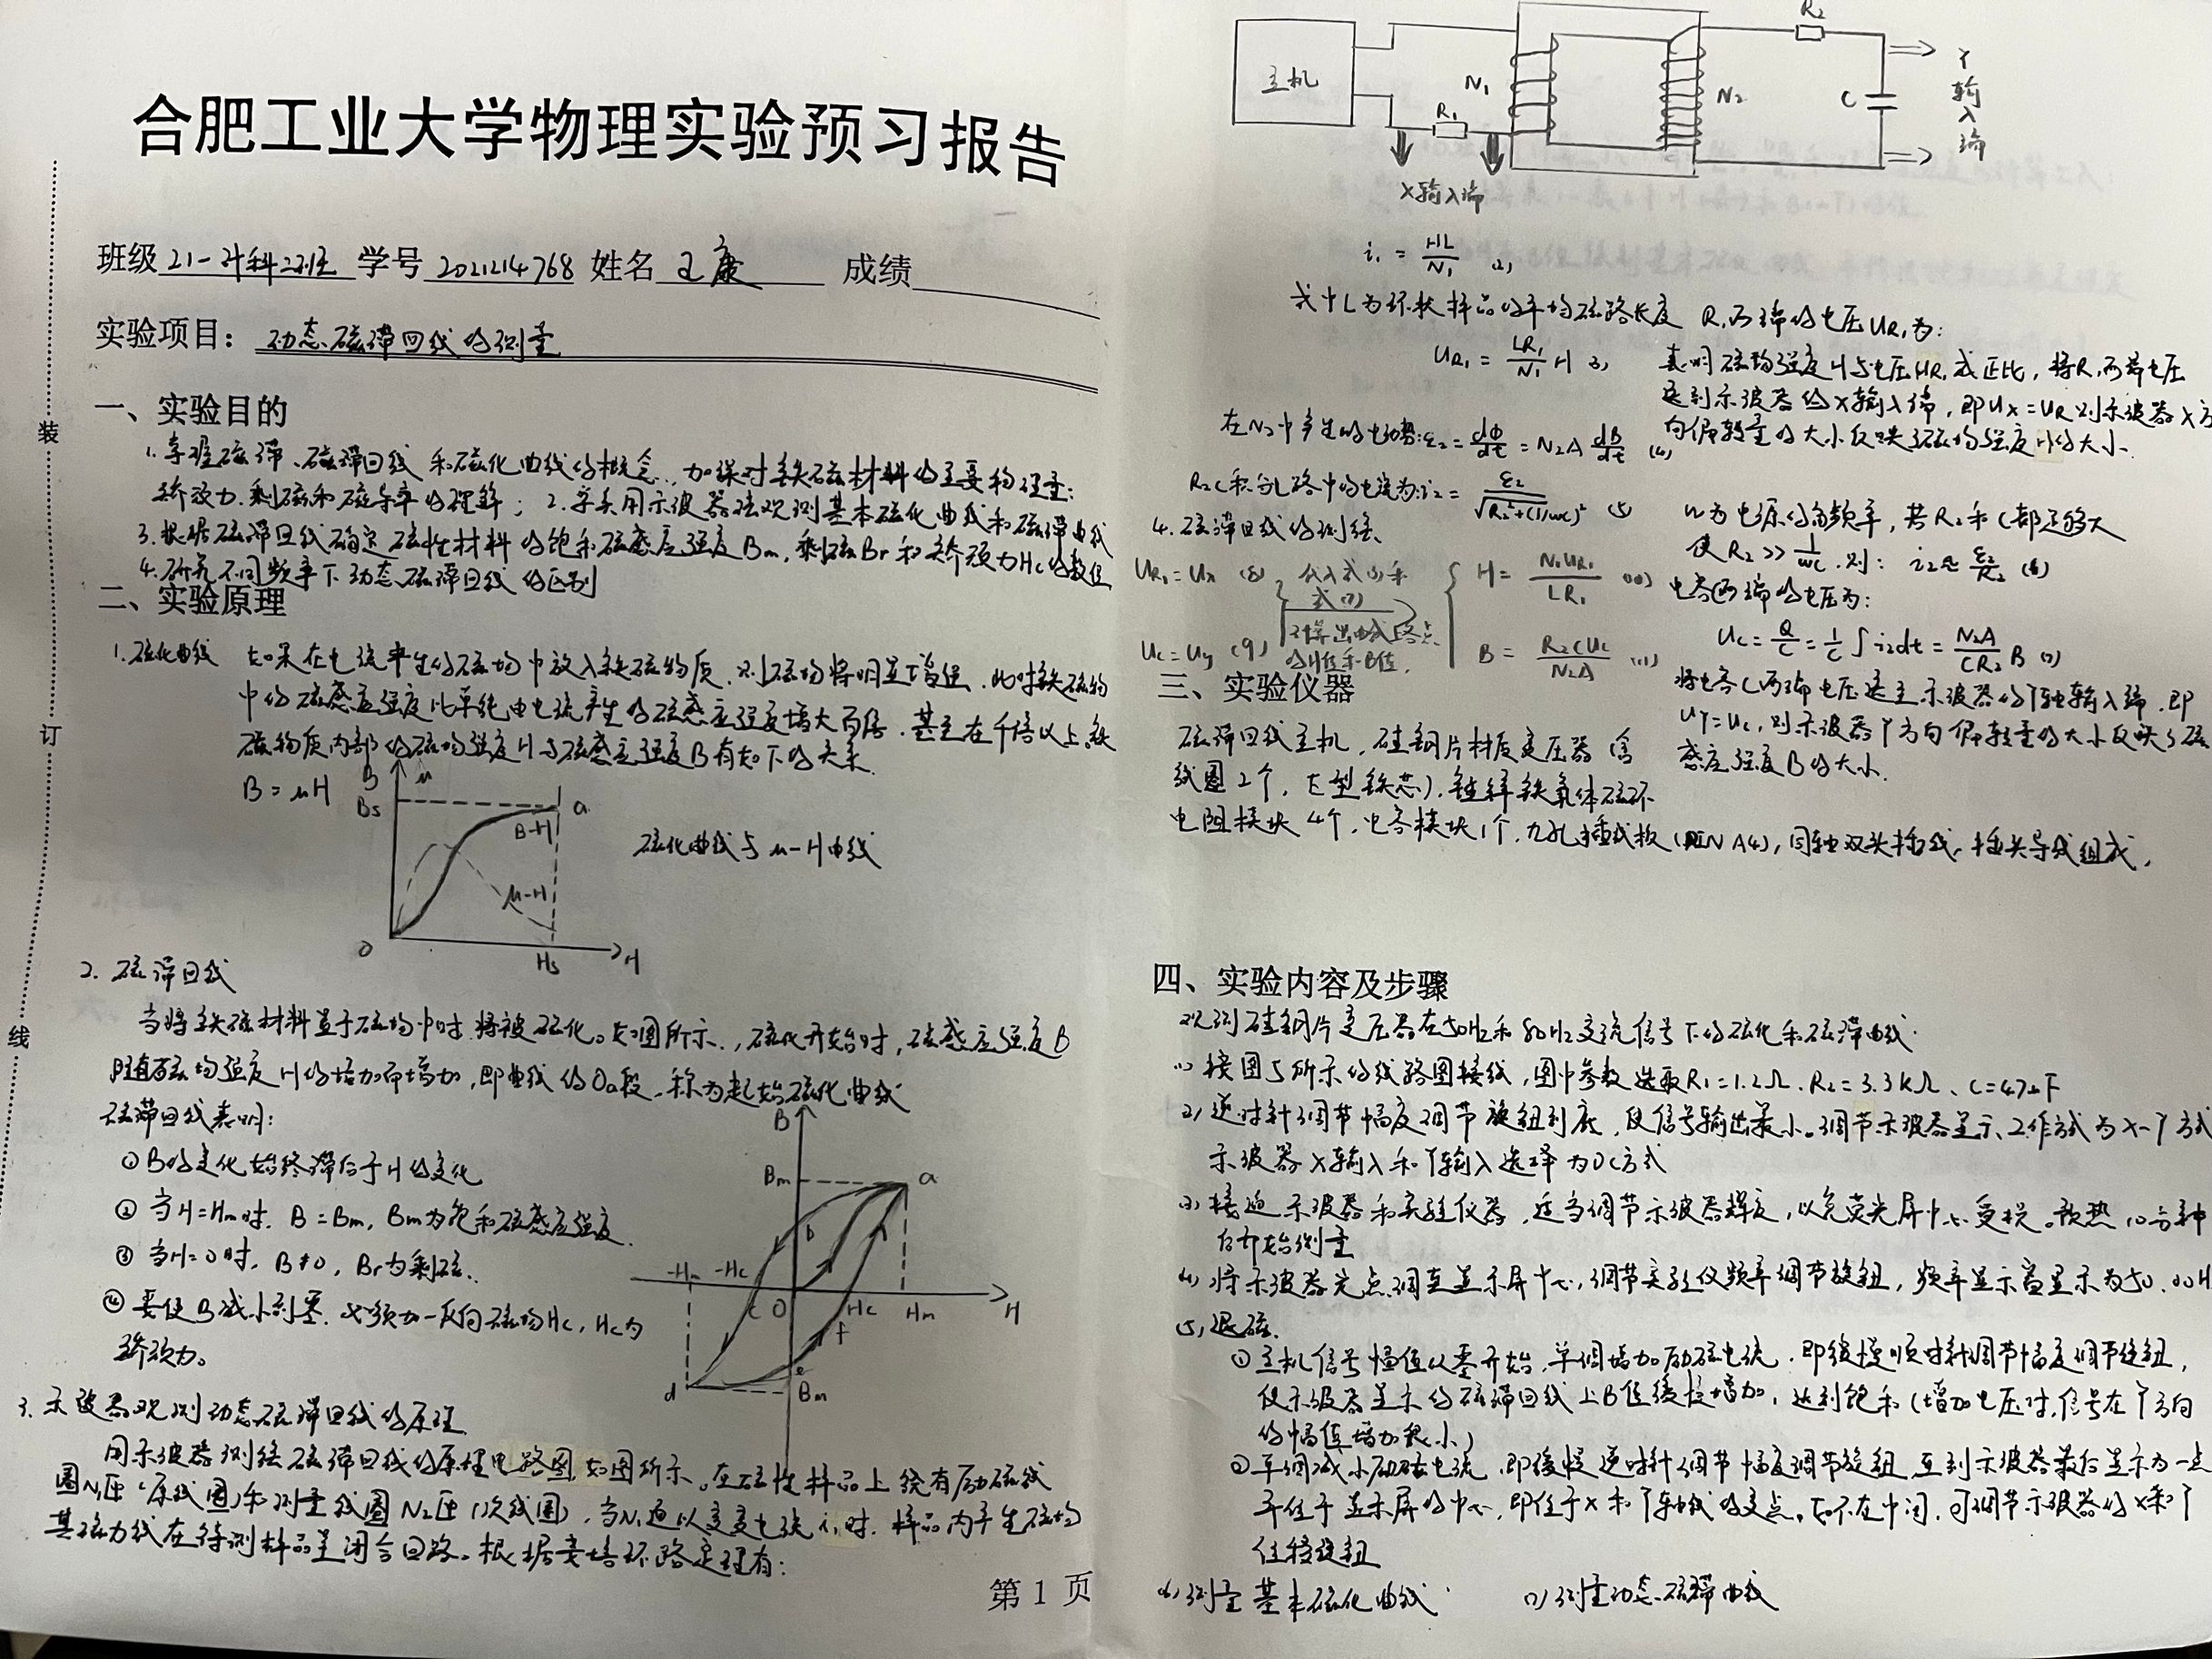 合肥工业大学物理实验预习报告
班级 21-计科2班 学号 2021214768 姓名 王康 成绩
实验项目: 动态磁滞回线的测量
装
订
线
一、实验目的
1.掌握磁滞、磁滞回线和磁化曲线的概念,加深对铁磁材料的主要物理量:
矫顽力.剩磁和磁导率的理解; 2.学会用示波器法观测基本磁化曲线和磁滞曲线
3.根据磁滞回线确定磁性材料的饱和磁感应强度Bm,剩磁Br和矫顽力Hc的数值
4.研究不同频率下动态磁滞回线的区别
二、实验原理
1.磁化曲线 如果在电流产生的磁场中放入铁磁物质.则磁场将明显增强.此时铁磁物
中的磁感应强度比单纯由电流产生的磁感应强度增大百倍.甚至在千倍以上.铁
磁物质内部的磁场强度H与磁感应强度B有如下的关系.
B=μH
B μ
Bs a
B-H
μ-H
O Hs H
磁化曲线与μ-H曲线
2. 磁滞回线
当将铁磁材料置于磁场中时.将被磁化。如图所示.,磁化开始时,磁感应强度B
随着磁场强度H的增加而增加,即曲线的Oa段.称为起始磁化曲线
磁滞回线表明:
①B的变化始终滞后于H的变化
② 当H=Hm时. B=Bm, Bm为饱和磁感应强度.
③ 当H=0时, B≠0, Br为剩磁.
④ 要使B减小到零.必须加一反向磁场Hc, Hc为
矫顽力。
B
Bm a
b
-Hm -Hc c O Hc Hm H
f
e
d Bm
3. 示波器观测动态磁滞回线的原理
用示波器测绘磁滞回线的原理电路图如图所示。在磁性样品上绕有励磁线
圈N1匝(原线圈)和测量线圈N2匝(次线圈),当N1通以交变电流i1时.样品内产生磁场
其磁力线在待测样品呈闭合回路。根据安培环路定理有:
第 1 页
主机 N1 N2 R1 R2 C
Y输入端
X输入端
i1 = HL/N1 (2)
式中L为环状样品的平均磁路长度 R1两端的电压UR1为:
UR1 = LR1/N1 H (3) 表明磁场强度H与电压UR1成正比, 将R1两端电压
送到示波器的X输入端,即Ux=UR则示波器X方
向偏转量的大小反映了磁场强度H的大小.
在N2中产生的电动势:ε2=dΦ/dt=N2A dB/dt (4)
R2C积分电路中的电流为:i2= ε2/√R2²+(1/wc)² (5) w为电源的角频率, 若R2和C都足够大
使R2>>1/wc.则: i2≈ε2/R2 (6)
电容两端的电压为:
Uc=Q/C=1/C∫i2dt=N2A/CR2 B (7)
将电容C两端电压送至示波器的Y轴输入端.即
Uy=Uc,则示波器Y方向偏转量的大小反映了磁
感应强度B的大小.
4.磁滞回线的测绘.
UR1=Ux (8) 代入式(3)和式(7) H= N1UR1/LR1 (10)
Uc=Uy (9) 计算出曲线各点的H值和B值. B= R2CUc/N2A (11)
三、实验仪器
磁滞回线主机, 硅钢片材质变压器 (含
线圈2个, E型铁芯).锰锌铁氧体磁环
电阻模块4个,电容模块1个,九孔插线板(DIN A4),同轴双头插线、插头导线组成.
四、实验内容及步骤
观测硅钢片变压器在50Hz和80Hz交流信号下的磁化和磁滞曲线.
(1) 按图5所示的线路图接线,图中参数选取R1=1.2Ω、R2=3.3kΩ、C=47μF
2) 逆时针调节幅度调节旋钮到底,使信号输出最小。调节示波器显示工作方式为X-Y方式
示波器X输入和Y输入选择为DC方式
(3) 接通示波器和实验仪器,适当调节示波器辉度,以免荧光屏中心受损。预热10分钟
后开始测量
(4) 将示波器光点调至显示屏中心,调节实验仪频率调节旋钮, 频率显示窗显示为50.00H
(5) 退磁.
① 主机信号幅值从零开始.单调增加励磁电流.即缓慢顺时针调节幅度调节旋钮,
使示波器显示的磁滞回线上B值缓慢增加,达到饱和(增加电压时,信号在Y方向
的幅值增加很小)
② 单调减小励磁电流.即缓慢逆时针调节幅度调节旋钮直到示波器最后显示为一点
并位于显示屏的中心,即位于X和Y轴线的交点。如不在中间,可调节示波器的X和Y
位移旋钮
(6) 测量基本磁化曲线 (7) 测量动态磁滞曲线